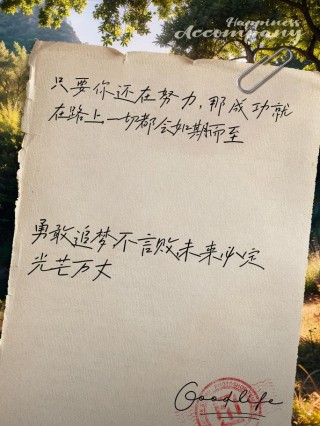 Happiness
Accompany
只要你还在努力，那成功就
在路上，一切都会如期而至
勇敢追梦不言败未来必定
光芒万丈
Goodlife